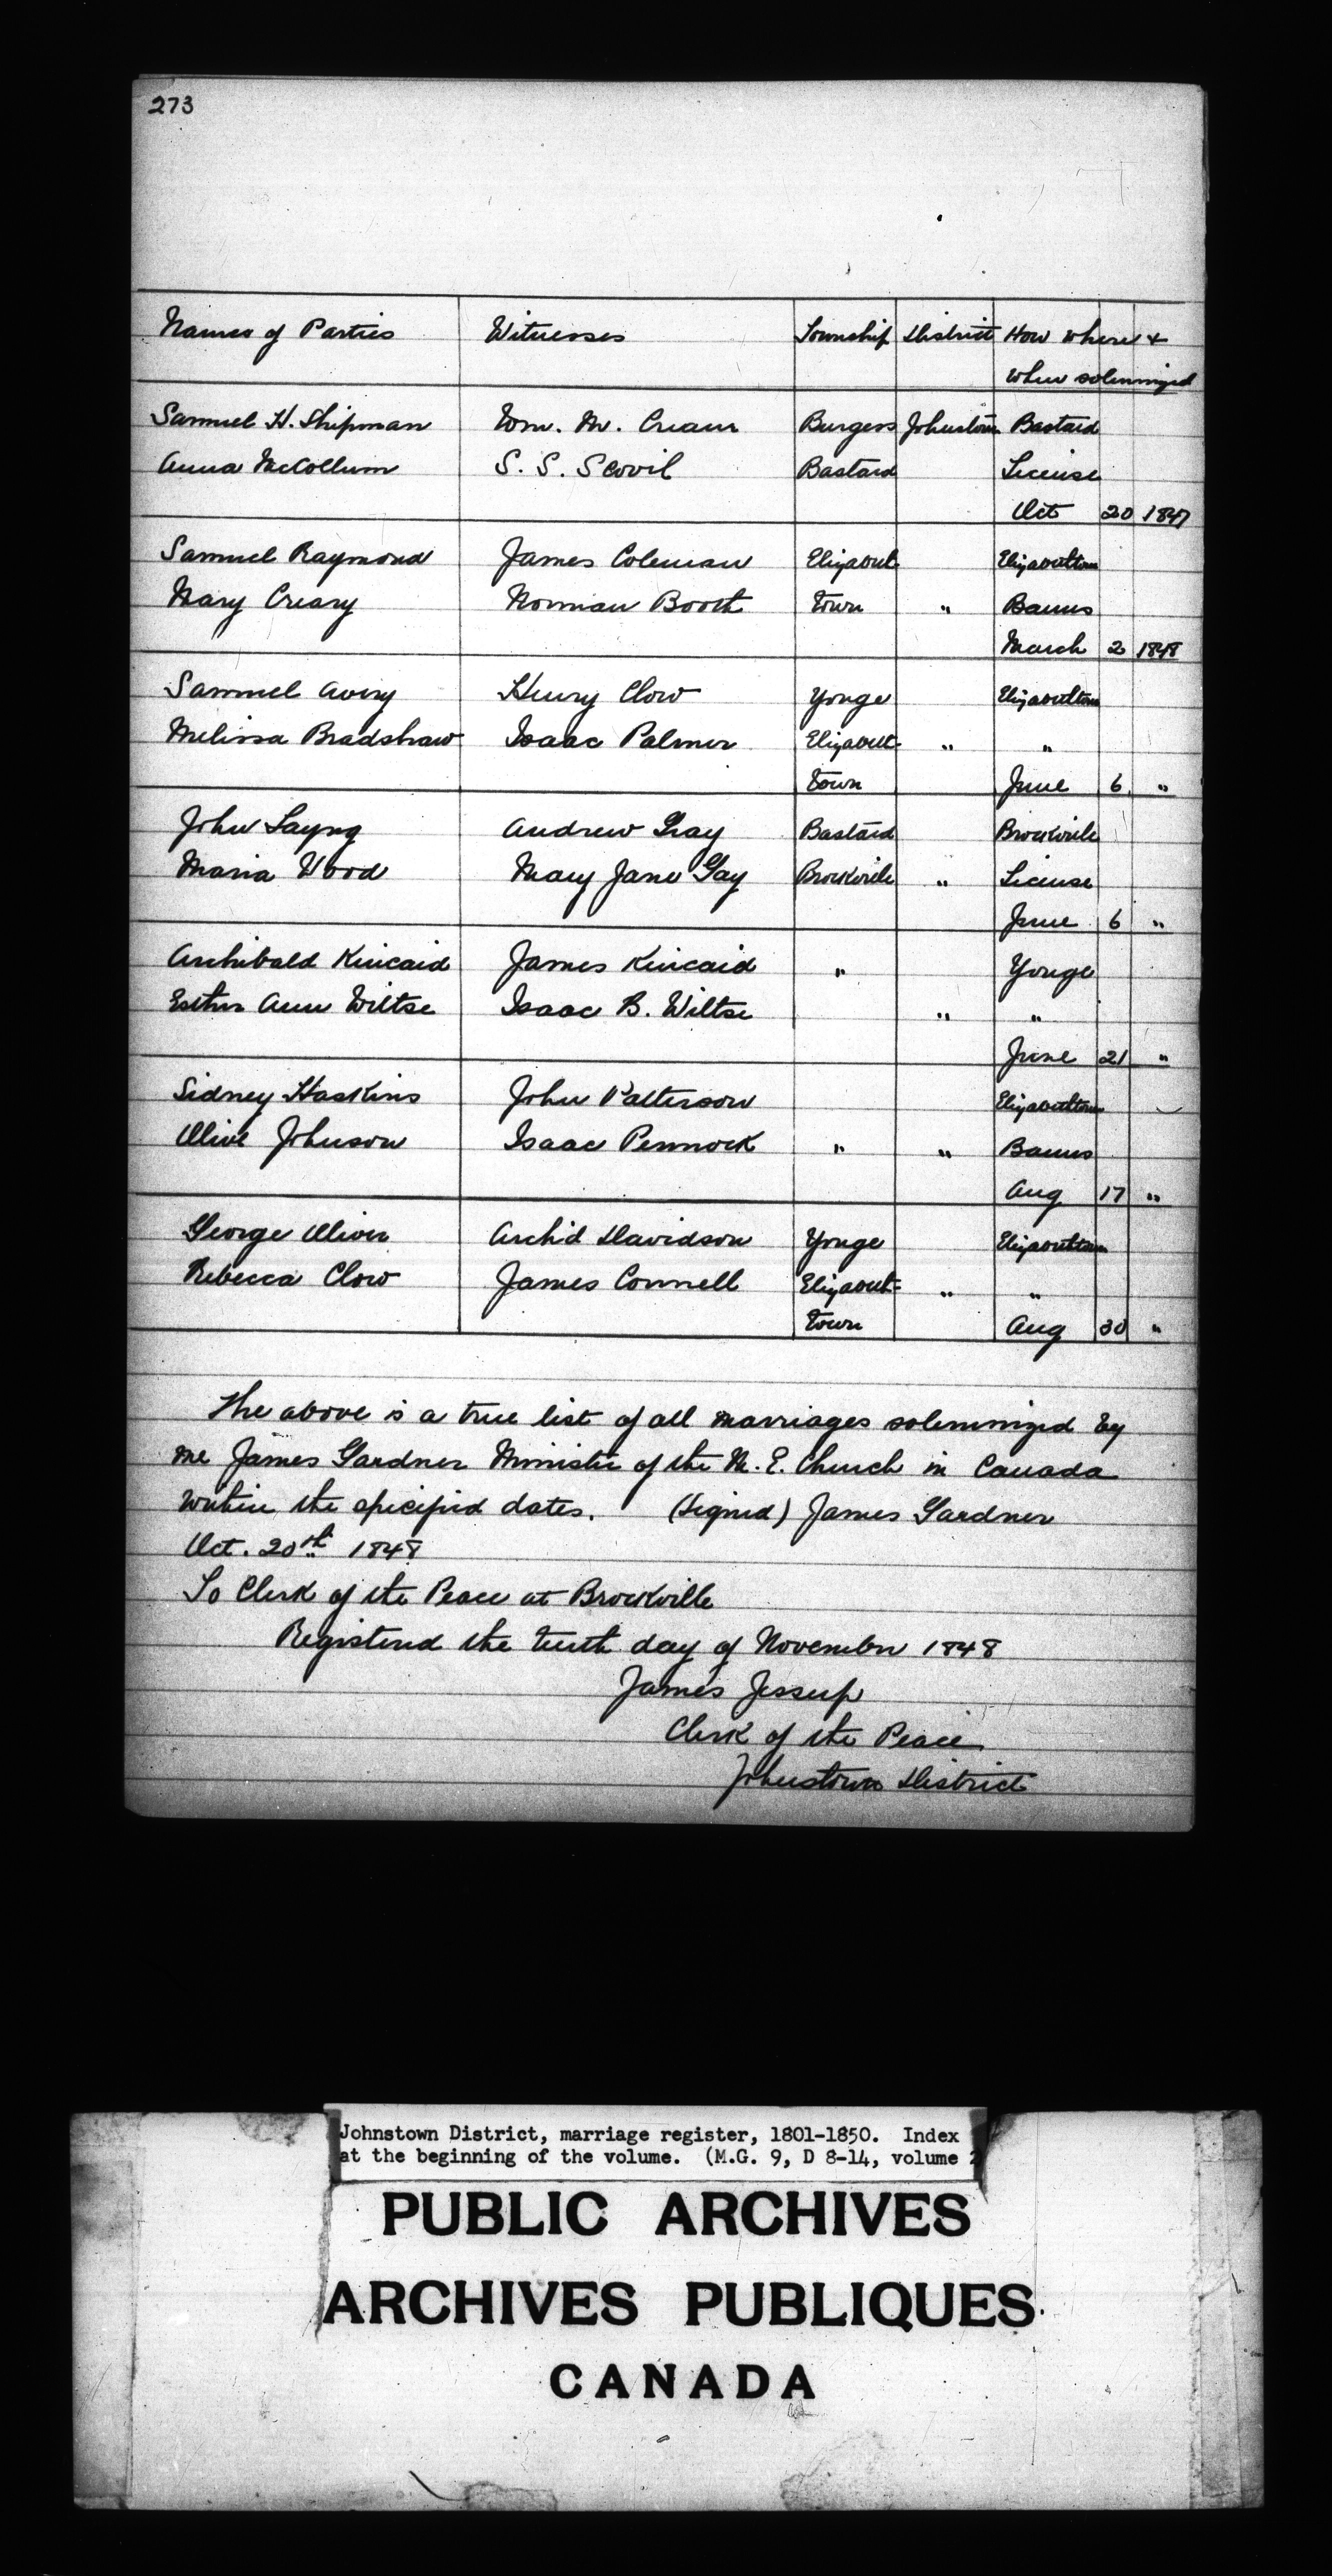 273
Names of Parties Witnesses Township District How where &
when solemnized
Samuel H. Shipman Wm. M. Cream Burgess Johnstown Bastard
Anna McCollum S. S. Scovil Bastard License
Oct 20 1847
Samuel Raymond James Coleman Elizabeth Elizabethtown
Mary Creary Norman Booth town " Banns
March 2 1848
Samuel Avery Henry Clow Yonge Elizabethtown
Melissa Bradshaw Isaac Palmer Elizabeth- " "
town June 6 "
John Layng Andrew Gray Bastard Brockville
Maria Wood Mary Jane Gay Brockville " License
June 6 "
Archibald Kincaid James Kincaid " Yonge
Esther Ann Wiltse Isaac B. Wiltse " "
June 21 "
Sidney Haskins John Patterson Elizabethtown
Olive Johnson Isaac Pennock " " Banns
Aug 17 "
George Oliver Archd Davidson Yonge Elizabethtown
Rebecca Clow James Connell Elizabeth- " "
town Aug 30 "
The above is a true list of all marriages solemnized by
me James Gardner Minister of the M. E. Church in Canada
within the specified dates. (Signed) James Gardner
Oct. 20th 1848
To Clerk of the Peace at Brockville
Registered the tenth day of November 1848
James Jessup
Clerk of the Peace
Johnstown District
Johnstown District, marriage register, 1801-1850. Index
at the beginning of the volume. (M.G. 9, D 8-14, volume 2
PUBLIC ARCHIVES
ARCHIVES PUBLIQUES
CANADA